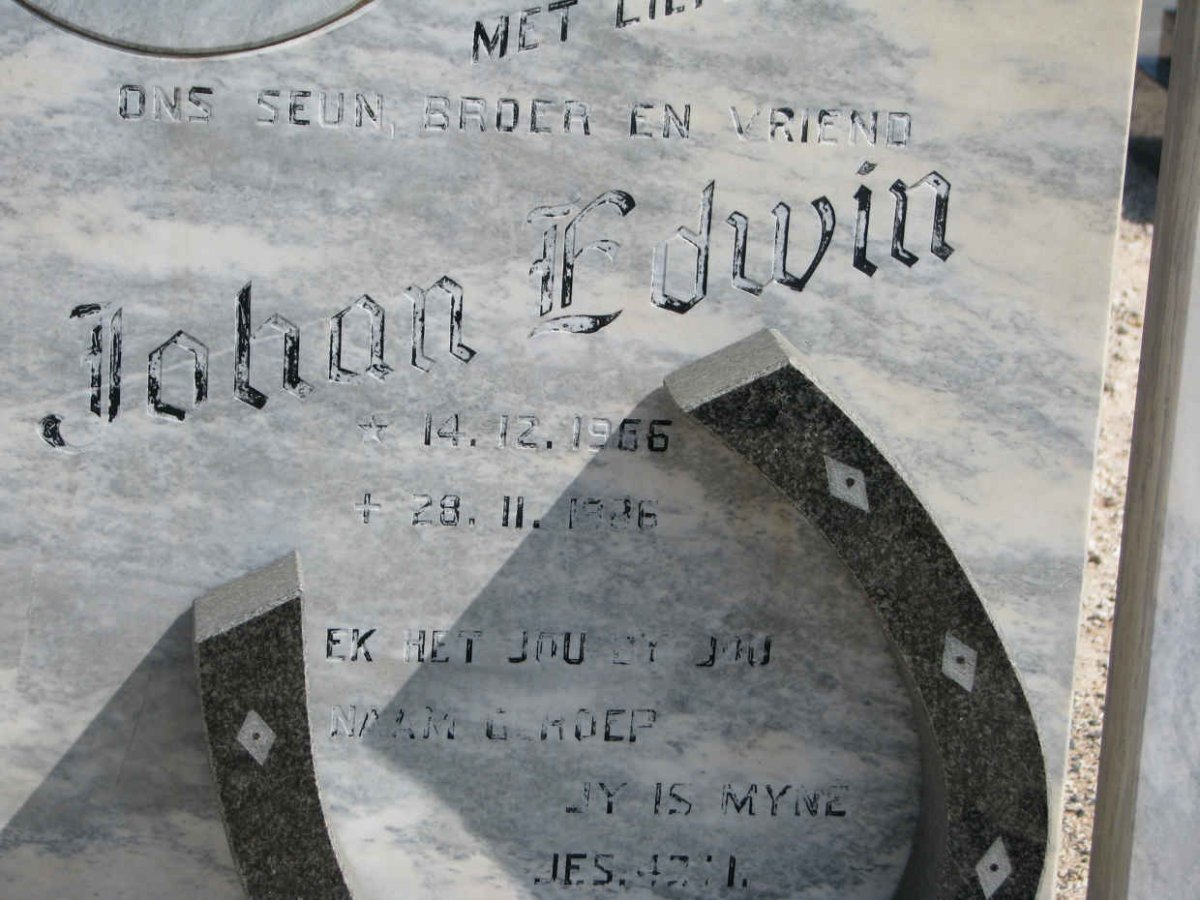 MET
ONS SEUN, BROER EN VRIEND
Johan Edwin
☆ 14.12.1966
+ 28.11.1986
EK HET JOU BY JOU
NAAM GEROEP
JY IS MYNE
JES. 43:1.